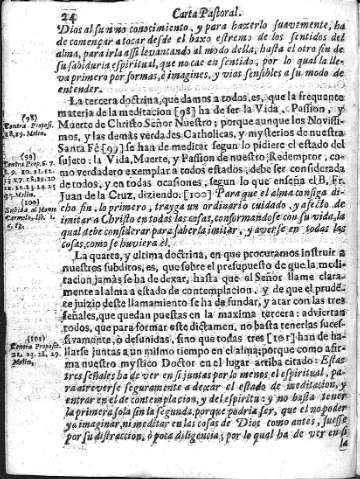 24 Carta Pastoral.
Dios al sumo conocimiento, y para hazerlo suavemente, ha
de començar a tocar desde el baxo estremo de los sentidos del
alma, para irla assi levantando al modo della, hasta el otro fin de
su sabiduria espiritual, que no cae en sentido; por lo qual la lle-
va primero por formas, è imagines, y vias sensibles a su modo de
entender.
La tercera doctrina, que damos a todos, es, que la frequente
materia de la meditacion [98] ha de ser la Vida, Passion, y
Muerte de Christo Señor Nuestro; porque aunque los Novissi-
mos, y las demàs verdades Catholicas, y mysterios de nuestra
Santa Fè [99] se han de meditar segun lo pidiere el estado del
sujeto: la Vida, Muerte, y Passion de nuestro Redemptor, co-
mo verdadero exemplar a todos estados, debe ser considerada
de todos, y en todas ocasiones, segun lo que enseña el B. Fr.
Juan de la Cruz, diziendo: [100] Para que el alma consiga di-
cho fin, lo primero, trayga un ordinario cuidado, y afecto de
imitar a Christo en todas las cosas, conformandose con su vida, la
qual debe considerar para saberla imitar, y averse en todas las
cosas, como se huviera èl.
La quarta, y ultima doctrina, en que procuramos instruir a
nuestros subditos, es, que sobre el presupuesto de que la medi-
tacion jamàs se ha de dexar, hasta que el Señor llame clara-
mente al alma a estado de contemplacion, y de que el prudẽ-
te juizio deste llamamiento se ha de fundar, y atar con las tres
señales, que quedan puestas en la maxima tercera: adviertan
todos, que para formar este dictamen, no basta tenerlas suces-
sivamente, ò desunidas, sino que todas tres [101] han de ha-
llarse juntas a un mismo tiempo en el alma; porque como afir-
ma nuestro mystico Doctor en el lugar arriba citado: Estas
tres señales ha de ver en sì juntas por lo menos el espiritual, pa-
ra atreverse seguramente a dexar el estado de meditacion, y
entrar en el de contemplacion, y del espiritu: y no basta tener
la primera sola sin la segunda, porque podria ser, que el no poder
ya imaginar, ni meditar en las cosas de Dios como antes, fuesse
por su distraccion, ò poca diligencia; por lo qual ha de ver en sì
la
(98)
Contra Proposi.
Molin.
(99)
Contra Prop. 6. 7.
Molin.
(100)
Subida al Monte
Carmelo, lib. 1.
(101)
Contra Proposi.
Molin.